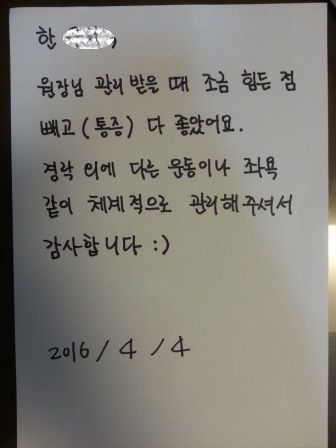 한 ,
원장님 관리 받을 때 조금 힘든 점
빼고 (통증) 다 좋았어요.
경락 외에 다른 운동이나 좌욕
같이 체계적으로 관리해주셔서
감사합니다 :)
2016 / 4 / 4